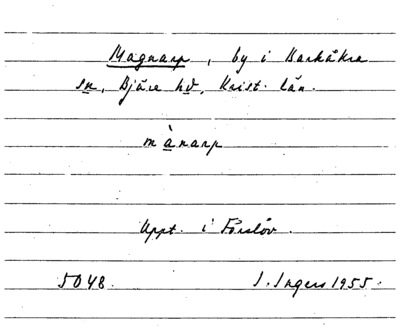 Magnarp, by i Barkåkra
sn, Bjäre hd, Krist. län.
mànarp
Uppt. i Förslöv.
5048. I. Ingers 1955.